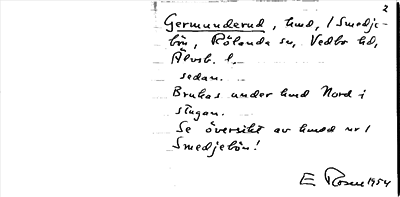 2
Germunderud, hmd, / Smedje-
bön, Rölanda sn, Vedbo hd,
Älvsb. l.
sedan.
Brukas under hmd Nord i
stugan.
Se översikt av hmd nr 1
Smedjebön!
E Rosen 1954